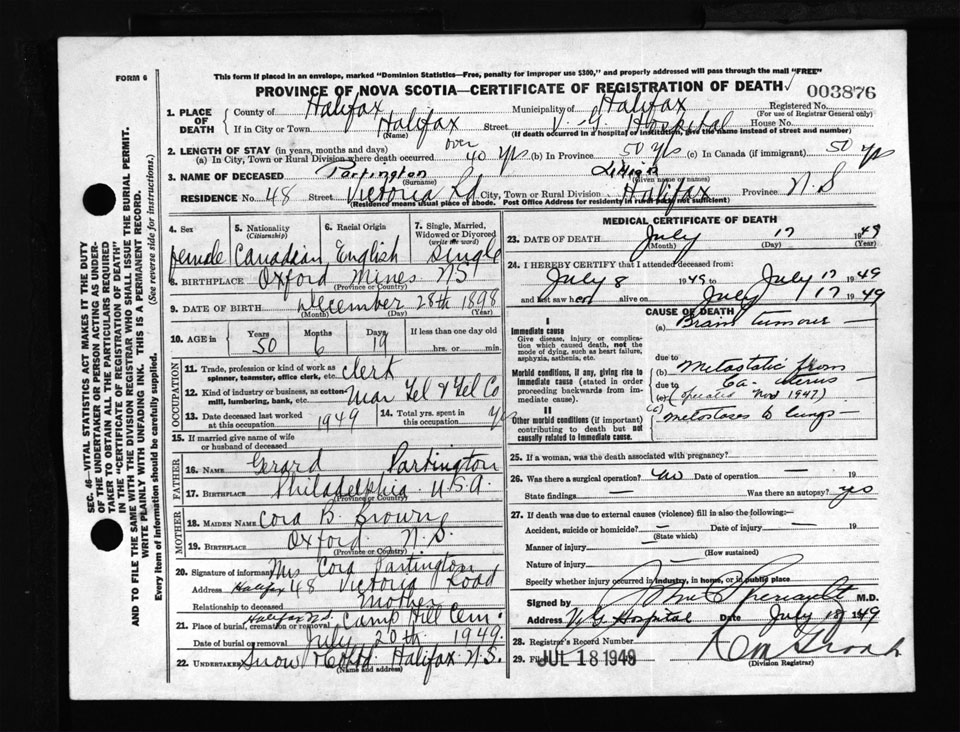 FORM 6
This form if placed in an envelope, marked "Dominion Statistics—Free, penalty for improper use $300," and properly addressed will pass through the mail "FREE"
PROVINCE OF NOVA SCOTIA—CERTIFICATE OF REGISTRATION OF DEATH
003876
1. PLACE OF DEATH
County of Halifax Municipality of Halifax Registered No. (For use of Registrar General only)
If in City or Town Halifax (Name) Street V. G. Hospital House No.
(If death occurred in a hospital or institution, give the name instead of street and number)
2. LENGTH OF STAY (in years, months and days)
(a) In City, Town or Rural Division where death occurred over 40 yrs (b) In Province 50 yrs (c) In Canada (if immigrant) 50 yrs
3. NAME OF DECEASED Partington (Surname) (Given name or names)
RESIDENCE No. 48 Street Victoria Rd City, Town or Rural Division Halifax Province N.S
(Residence means usual place of abode. Post Office Address for residents in rural parts not sufficient)
4. Sex female
5. Nationality (Citizenship) Canadian
6. Racial Origin English
7. Single, Married, Widowed or Divorced (write the word) Single
8. BIRTHPLACE Oxford Mines NS
(Province or Country)
9. DATE OF BIRTH December 28th 1898
(Month) (Day) (Year)
10. AGE in Years 50 Months 6 Days 19 If less than one day old hrs. or min.
OCCUPATION
11. Trade, profession or kind of work as spinner, teamster, office clerk, etc. clerk
12. Kind of industry or business, as cotton-mill, lumbering, bank, etc. Mar Tel & Tel Co
13. Date deceased last worked at this occupation 1949
14. Total yrs. spent in this occupation yrs
15. If married give name of wife or husband of deceased
FATHER
16. NAME Gerard Partington
17. BIRTHPLACE Philadelphia U.S.A.
(Province or Country)
MOTHER
18. MAIDEN NAME Cora B. Brown
19. BIRTHPLACE Oxford N.S.
(Province or Country)
20. Signature of informant Mrs Cora Partington
Address Halifax 48 Victoria Road
Relationship to deceased Mother
21. Place of burial, cremation or removal Halifax Camp Hill Cem.
Date of burial or removal July 20th 1949.
22. Undertaker Snow & Co Ltd. Halifax N.S.
(Name and address)
MEDICAL CERTIFICATE OF DEATH
23. DATE OF DEATH July 17 1949
(Month) (Day) (Year)
24. I HEREBY CERTIFY that I attended deceased from:
July 8 1949 to July 17 1949
and last saw her alive on July 17 1949
CAUSE OF DEATH
I
Immediate cause
Give disease, injury or complication which caused death, not the mode of dying, such as heart failure, asphyxia, asthenia, etc.
(a) Brain tumour
due to
Morbid conditions, if any, giving rise to immediate cause (stated in order proceeding backwards from immediate cause).
(b) Metastatic from
due to Ca- uterus
(operated Nov 1947)
II
Other morbid conditions (if important) contributing to death but not causally related to immediate cause.
(c) metastases to lungs
25. If a woman, was the death associated with pregnancy?
26. Was there a surgical operation? no Date of operation — 19
State findings — Was there an autopsy? yes
27. If death was due to external causes (violence) fill in also the following:—
Accident, suicide or homicide? — Date of injury — 19
(State which)
Manner of injury —
(How sustained)
Nature of injury —
Specify whether injury occurred in industry, in home, or in public place
Signed by M.D.
Address V. G Hospital Date July 18 1949
28. Registrar's Record Number
29. Filed JUL 18 1949
(Division Registrar)
SEC. 46—VITAL STATISTICS ACT MAKES IT THE DUTY
OF THE UNDERTAKER OR PERSON ACTING AS UNDERTAKER
TO OBTAIN ALL THE PARTICULARS REQUIRED
IN THE "CERTIFICATE OF REGISTRATION OF DEATH"
AND TO FILE THE SAME WITH THE DIVISION REGISTRAR WHO SHALL ISSUE THE BURIAL PERMIT.
WRITE PLAINLY WITH UNFADING INK. THIS IS A PERMANENT RECORD.
Every item of information should be carefully supplied. (See reverse side for instructions.)